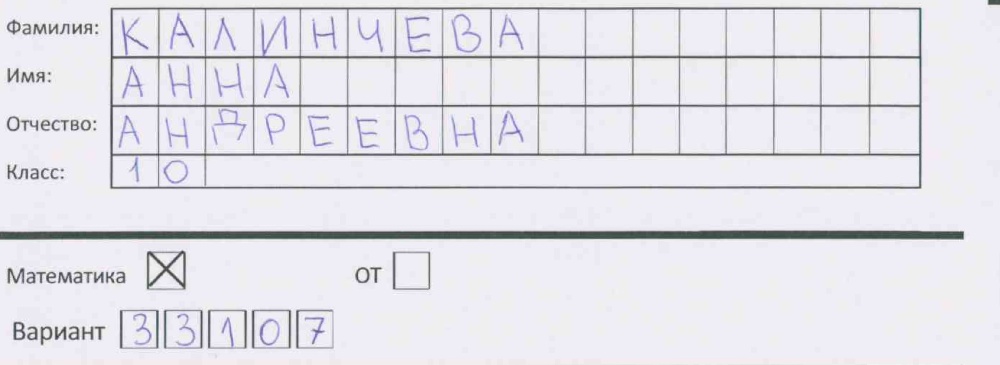 Фамилия: КАЛИНЧЕВА
Имя: АННА
Отчество: АНДРЕЕВНА
Класс: 10
Математика ☒ ОТ ☐
Вариант 33107